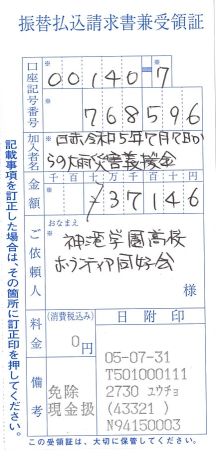 振替払込請求書兼受領証
口座記号番号
00140-7
768596
加入者名
日赤令和5年7月7日か
らの大雨災害義援金
金額
千百十万千百十円
37146
おなまえ
ご依頼人
神港学園高校
ボランティア同好会
様
料金
(消費税込み)
0円
日附印
05-07-31
T501000111
2730 ユウチョ
(43321)
N94150003
備考
免除
現金扱
この受領証は、大切に保管してください。
記載事項を訂正した場合は、その箇所に訂正印を押してください。